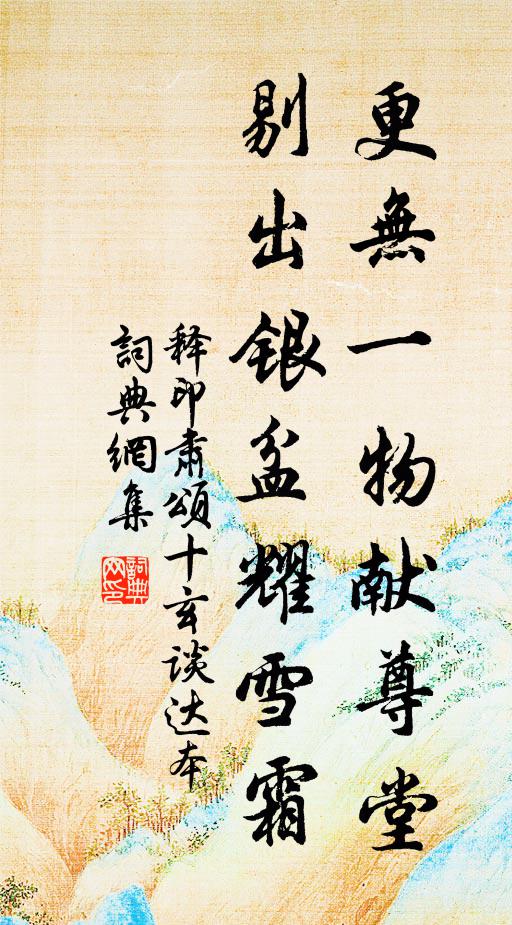 更無一物献尊堂
剔出銀盆耀雪霜
释印肃頌十玄谈达本
詞典網集
詞典网印